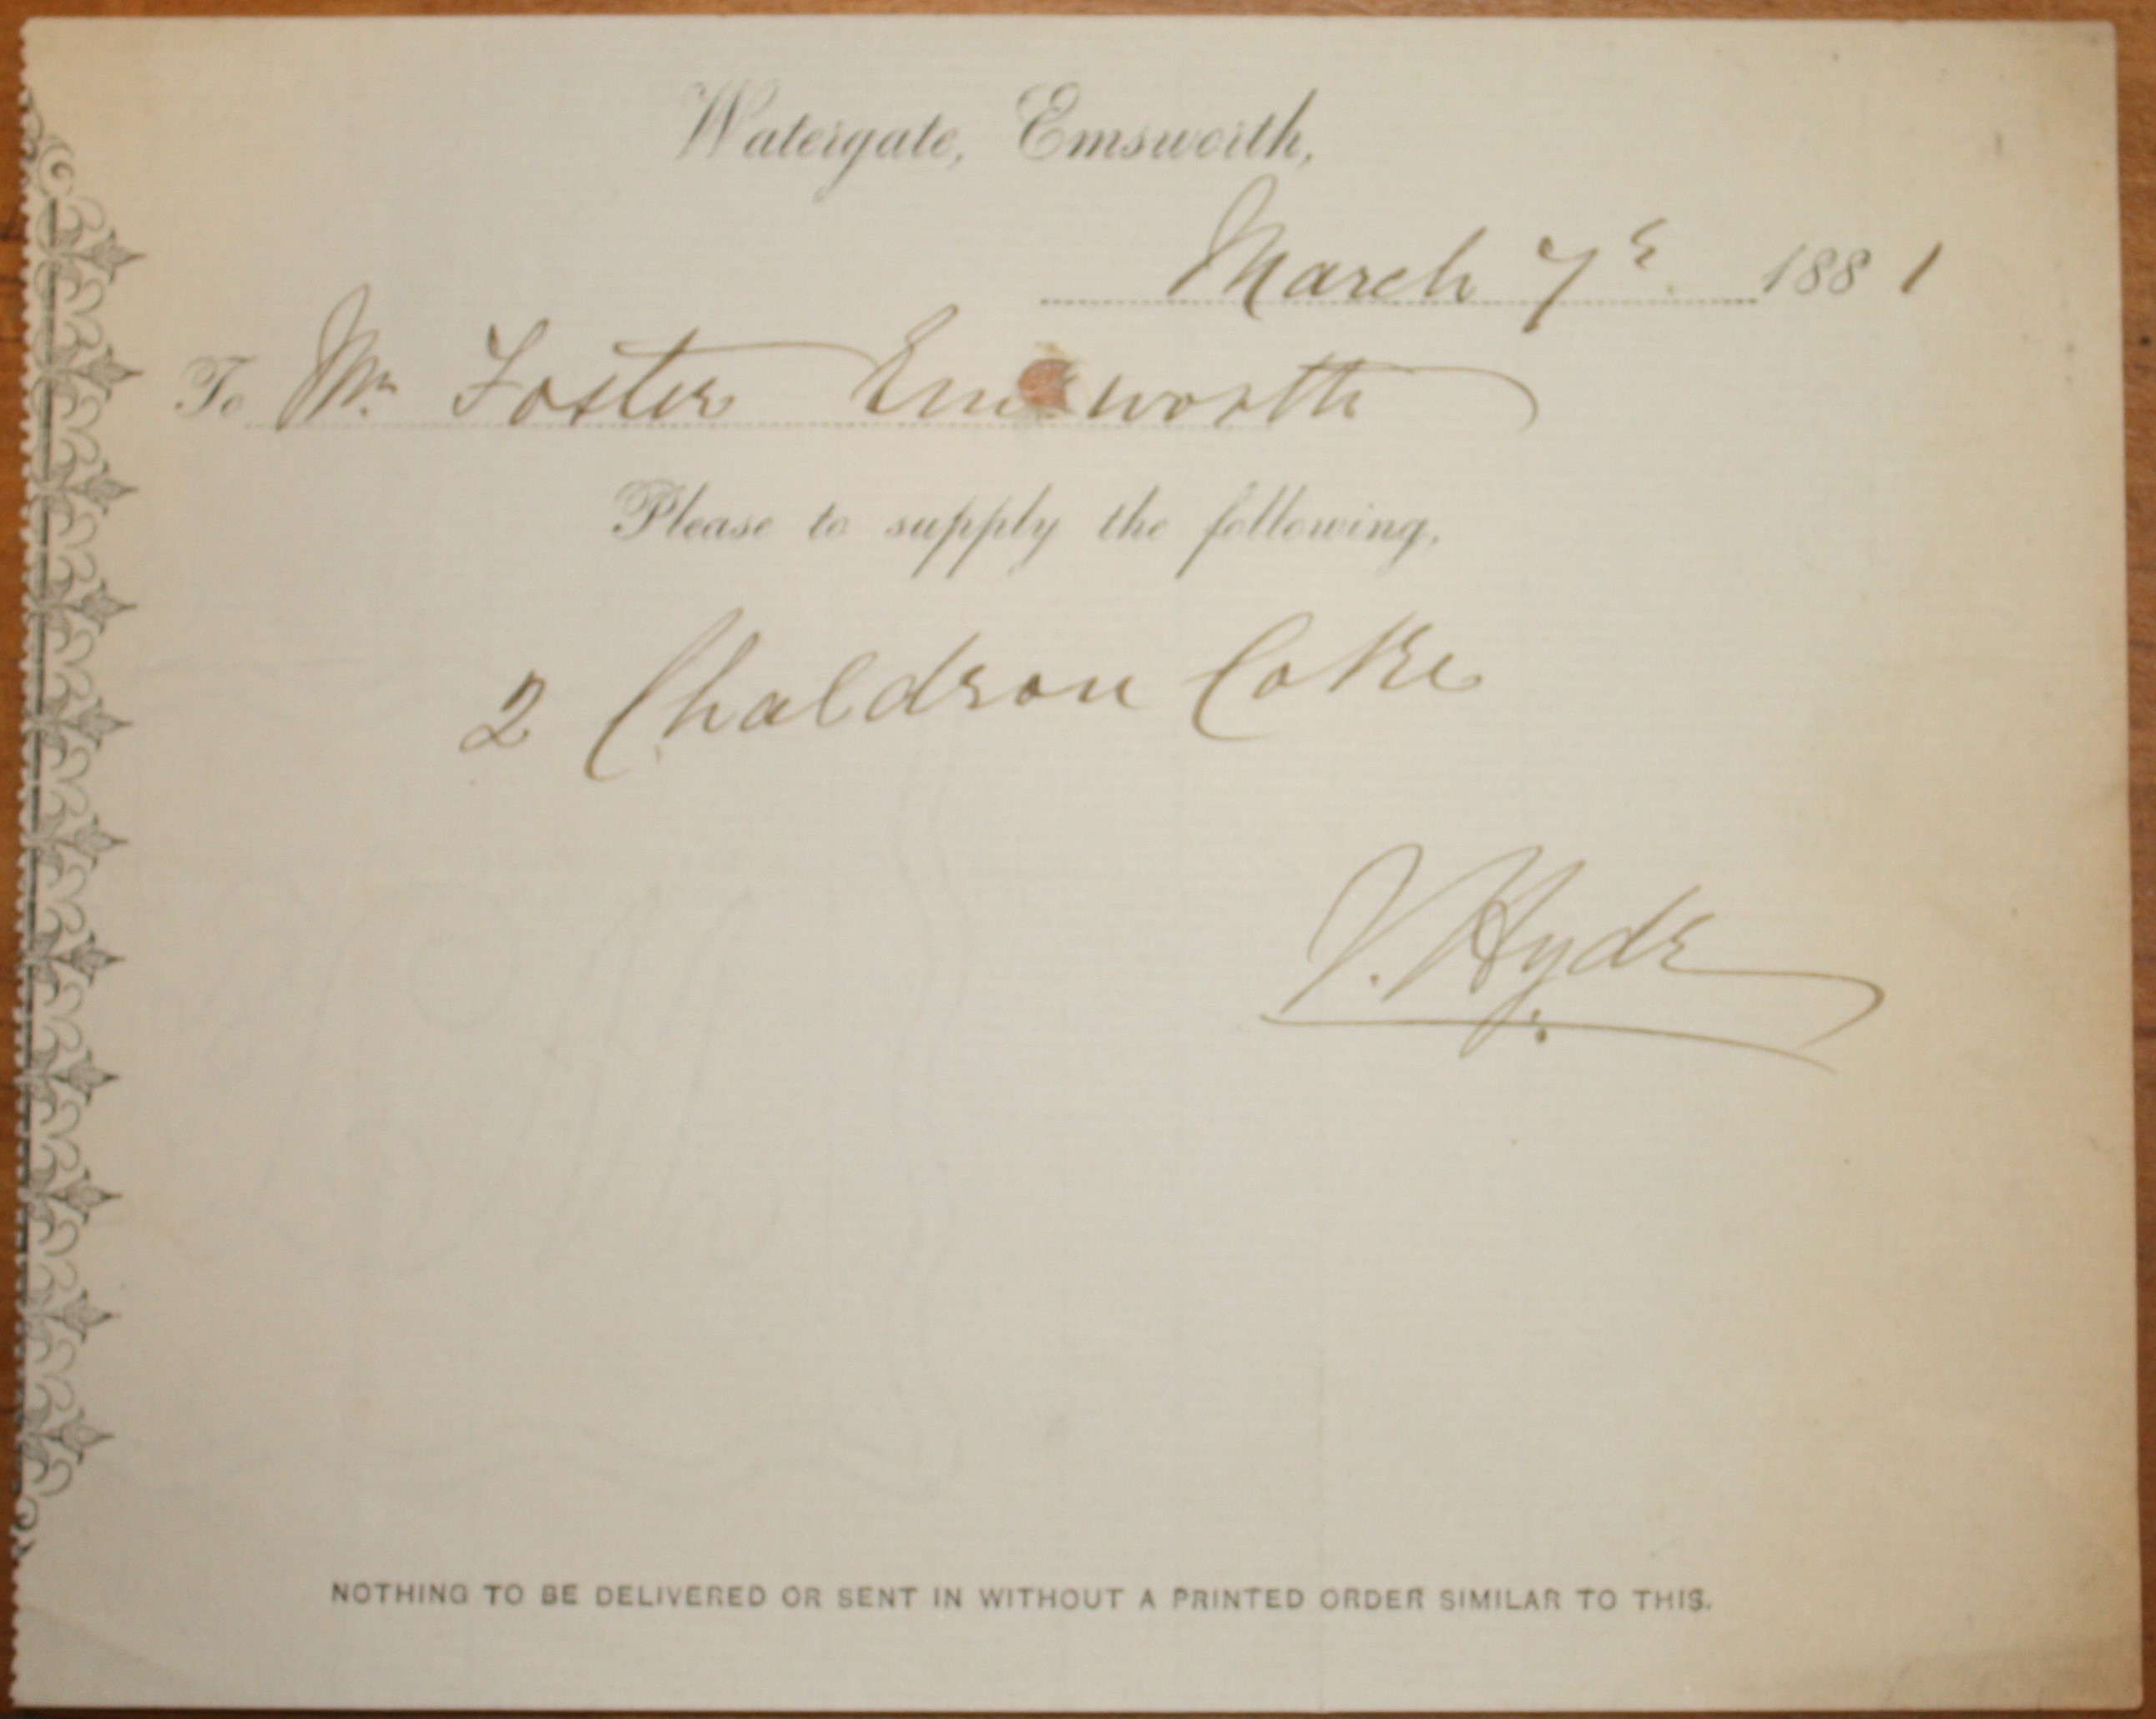 Watergate, Emsworth,
March 7th 1881
To Mr Foster Emsworth
Please to supply the following,
2 Chaldron Coke
J. Hyde
NOTHING TO BE DELIVERED OR SENT IN WITHOUT A PRINTED ORDER SIMILAR TO THIS.